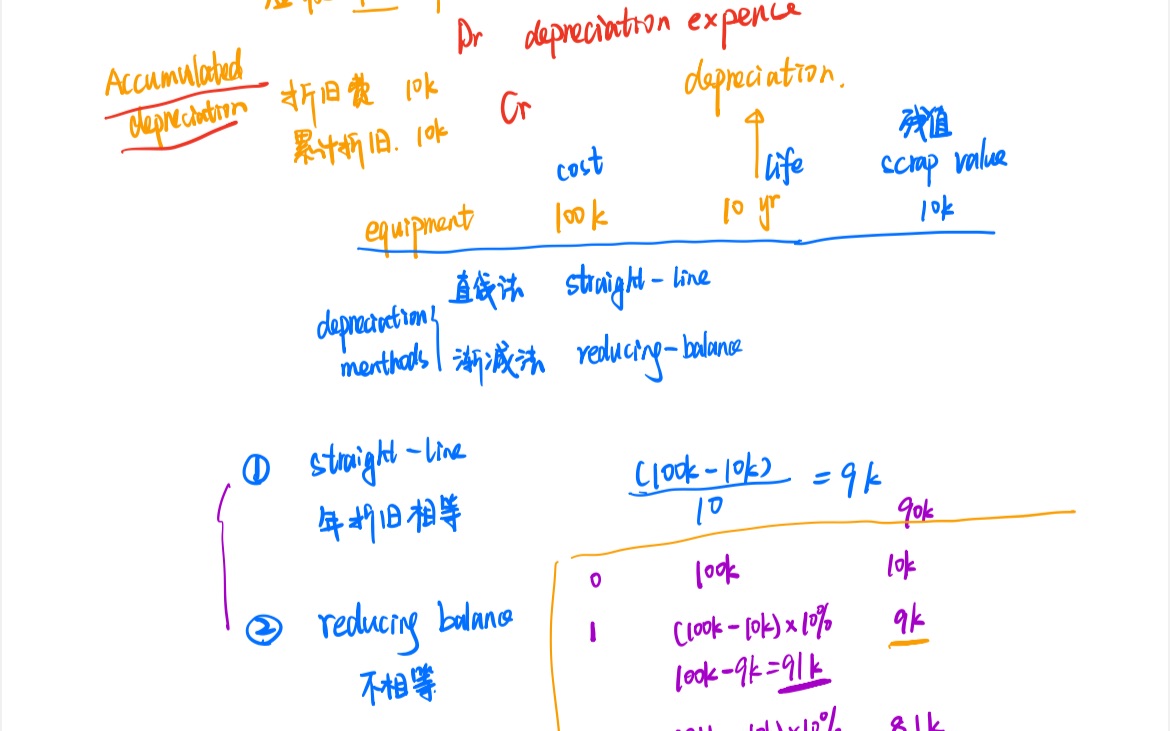 Dr depreciation expence
Accumulated
depreciation
折旧费 10k
累计折旧. 10k
Cr
depreciation.
残值
cost
life
scrap value
equipment 100k 10 yr 10k
直线法 straight-line
depreciation
menthods
渐减法 reducing-balance
① straight-line
年折旧相等
(100k-10k)
10
= 9k
90k
0 100k 10k
② reducing balance
不相等
1 (100k-10k)×10% 9k
100k-9k=91k
8.1k